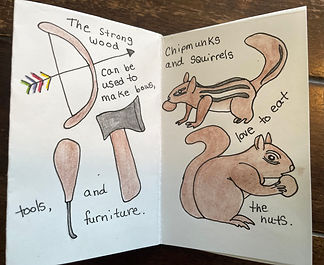 The strong
wood
can be
used to
make bows,
tools,
and
furniture.
Chipmunks
and squirrels
love to eat
the
nuts.